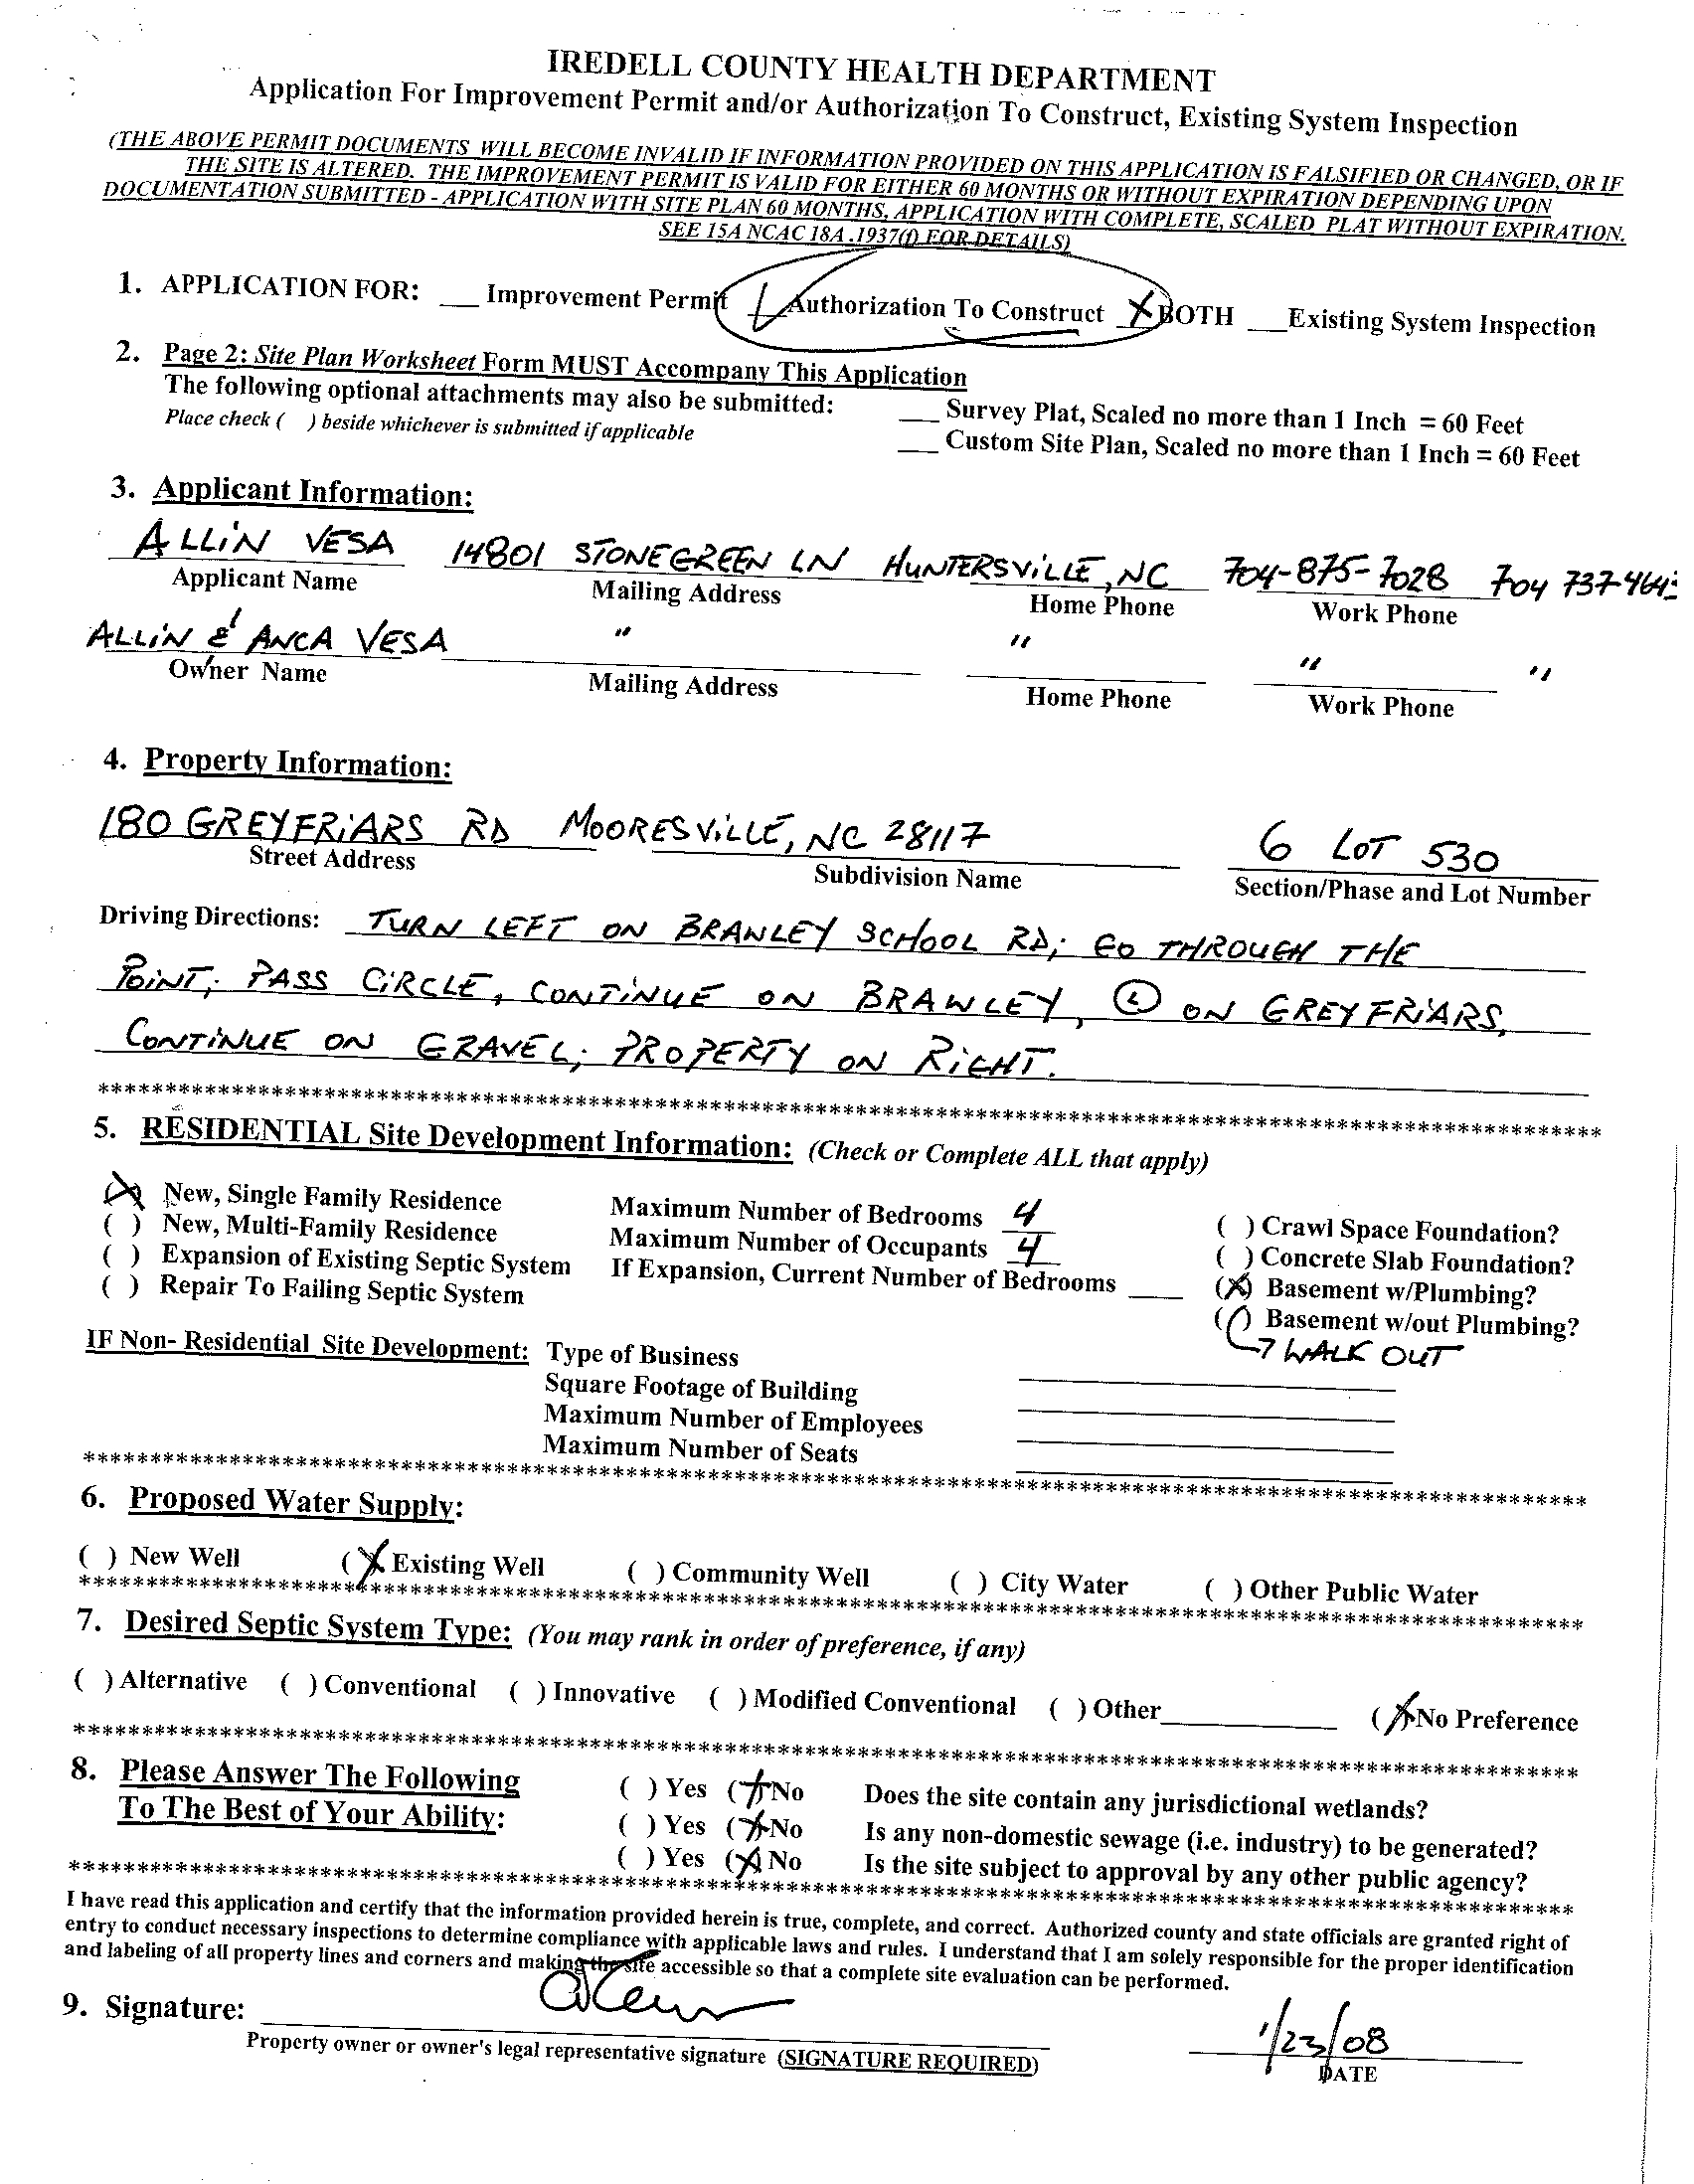 IREDELL COUNTY HEALTH DEPARTMENT
Application For Improvement Permit and/or Authorization To Construct, Existing System Inspection
(THE ABOVE PERMIT DOCUMENTS WILL BECOME INVALID IF INFORMATION PROVIDED ON THIS APPLICATION IS FALSIFIED OR CHANGED, OR IF
THE SITE IS ALTERED. THE IMPROVEMENT PERMIT IS VALID FOR EITHER 60 MONTHS OR WITHOUT EXPIRATION DEPENDING UPON
DOCUMENTATION SUBMITTED - APPLICATION WITH SITE PLAN 60 MONTHS, APPLICATION WITH COMPLETE, SCALED PLAT WITHOUT EXPIRATION.
SEE 15A NCAC 18A .1937(f) FOR DETAILS)
1. APPLICATION FOR: ___ Improvement Permit ✓ Authorization To Construct X BOTH ___Existing System Inspection
2. Page 2: Site Plan Worksheet Form MUST Accompany This Application
The following optional attachments may also be submitted: ___ Survey Plat, Scaled no more than 1 Inch = 60 Feet
Place check ( ) beside whichever is submitted if applicable ___ Custom Site Plan, Scaled no more than 1 Inch = 60 Feet
3. Applicant Information:
ALLIN VESA 14801 STONEGREEN LN HUNTERSVILLE, NC 704-875-7028 704 737-464
Applicant Name Mailing Address Home Phone Work Phone
ALLIN & ANCA VESA " " " "
Owner Name Mailing Address Home Phone Work Phone
4. Property Information:
180 GREYFRIARS RD MOORESVILLE, NC 28117 6 LOT 530
Street Address Subdivision Name Section/Phase and Lot Number
Driving Directions: TURN LEFT ON BRANLEY SCHOOL RD; GO THROUGH THE
POINT; PASS CIRCLE, CONTINUE ON BRAWLEY, (L) ON GREYFRIARS,
CONTINUE ON GRAVEL; PROPERTY ON RIGHT.
5. RESIDENTIAL Site Development Information: (Check or Complete ALL that apply)
(X) New, Single Family Residence Maximum Number of Bedrooms 4 ( ) Crawl Space Foundation?
( ) New, Multi-Family Residence Maximum Number of Occupants 4 ( ) Concrete Slab Foundation?
( ) Expansion of Existing Septic System If Expansion, Current Number of Bedrooms ____ (X) Basement w/Plumbing?
( ) Repair To Failing Septic System ( ) Basement w/out Plumbing?
WALK OUT
IF Non- Residential Site Development: Type of Business
Square Footage of Building
Maximum Number of Employees
Maximum Number of Seats
6. Proposed Water Supply:
( ) New Well (X) Existing Well ( ) Community Well ( ) City Water ( ) Other Public Water
7. Desired Septic System Type: (You may rank in order of preference, if any)
( ) Alternative ( ) Conventional ( ) Innovative ( ) Modified Conventional ( ) Other____________ (X) No Preference
8. Please Answer The Following ( ) Yes (X) No Does the site contain any jurisdictional wetlands?
To The Best of Your Ability: ( ) Yes (X) No Is any non-domestic sewage (i.e. industry) to be generated?
( ) Yes (X) No Is the site subject to approval by any other public agency?
I have read this application and certify that the information provided herein is true, complete, and correct. Authorized county and state officials are granted right of
entry to conduct necessary inspections to determine compliance with applicable laws and rules. I understand that I am solely responsible for the proper identification
and labeling of all property lines and corners and making the site accessible so that a complete site evaluation can be performed.
9. Signature:
1/23/08
Property owner or owner's legal representative signature (SIGNATURE REQUIRED) DATE